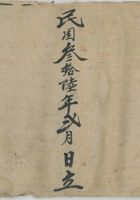 民国叁拾陆年弍月日立